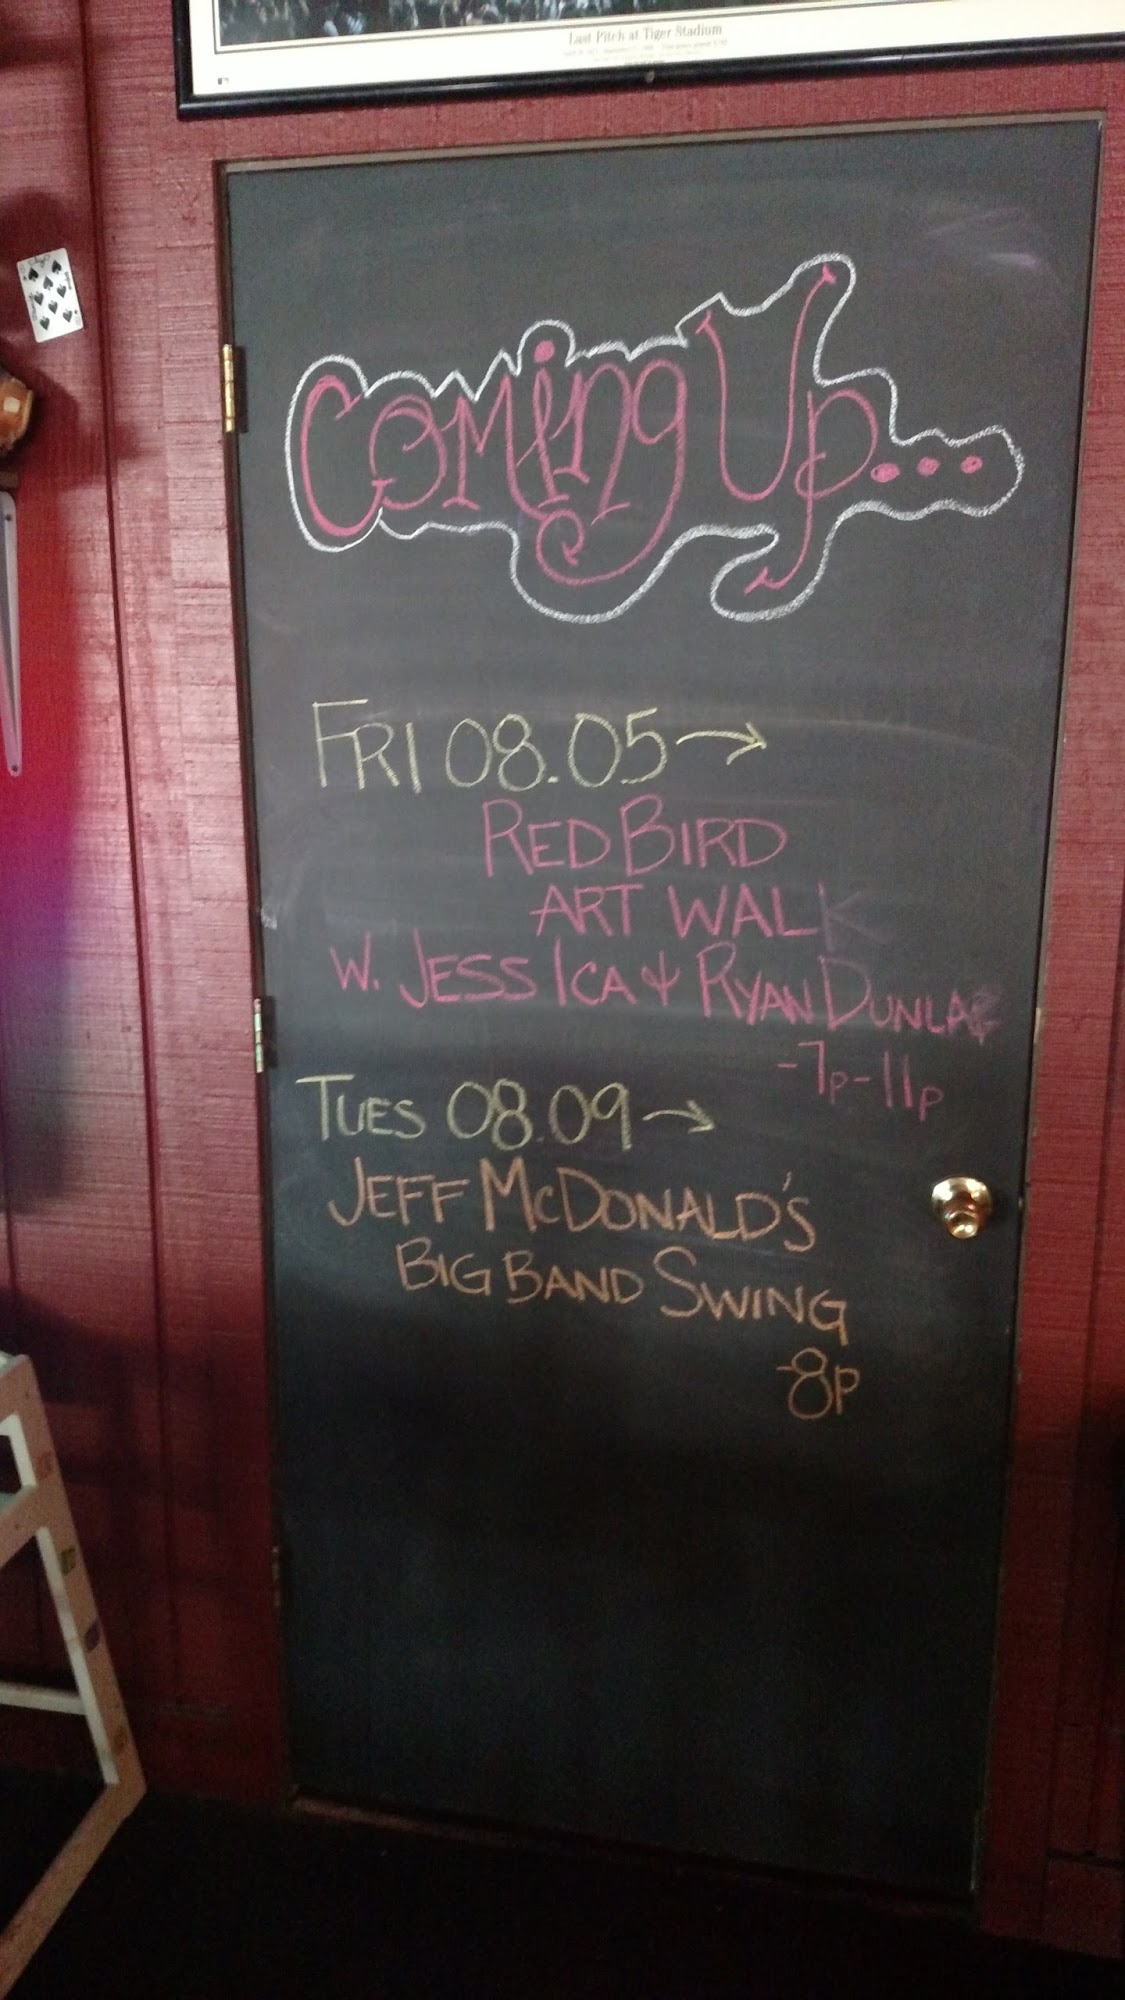 Last Pitch at Tiger Stadium
Coming Up...
FRI 08.05→
RED BIRD
ART WALK
W. JESSICA & RYAN DUNLAP
-7P-11P
TUES 08.09→
JEFF McDONALD'S
BIG BAND SWING
-8P